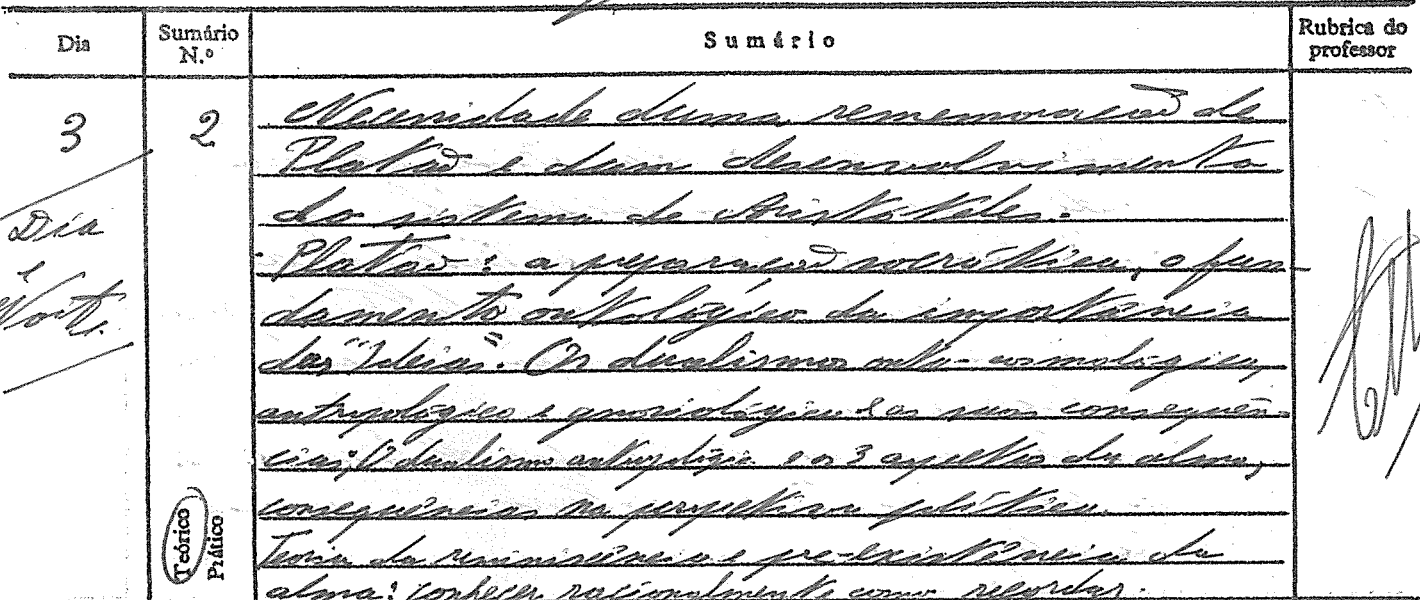 Dia
Sumário N.º
Sumário
Rubrica do professor
3
2
Dia
e
Noite.
Teórico
Prático
Necessidade duma rememoração de
Platão e dum desenvolvimento
do sistema de Aristóteles.
Platão: a preparação socrática, o fun-
damento ontológico da importância
das "Ideias". Os dualismos onto-cosmológico,
antropológico e gnosiológico e as suas consequên-
cias; O dualismo antropológico e os 3 aspectos da alma,
consequências na perspectiva política.
Teoria da reminiscência e pré-existência da
alma: conhecer racionalmente como recordar.